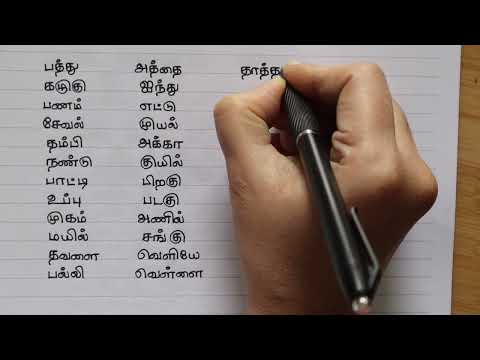 பத்து அத்தை தாத்த
கடுகு ஐந்து
பணம் எட்டு
சேவல் முயல்
தம்பி அக்கா
நண்டு குயில்
பாட்டி பிறகு
உப்பு படகு
முகம் அணில்
மயில் சங்கு
தவளை வெளியே
பல்லி வெள்ளை